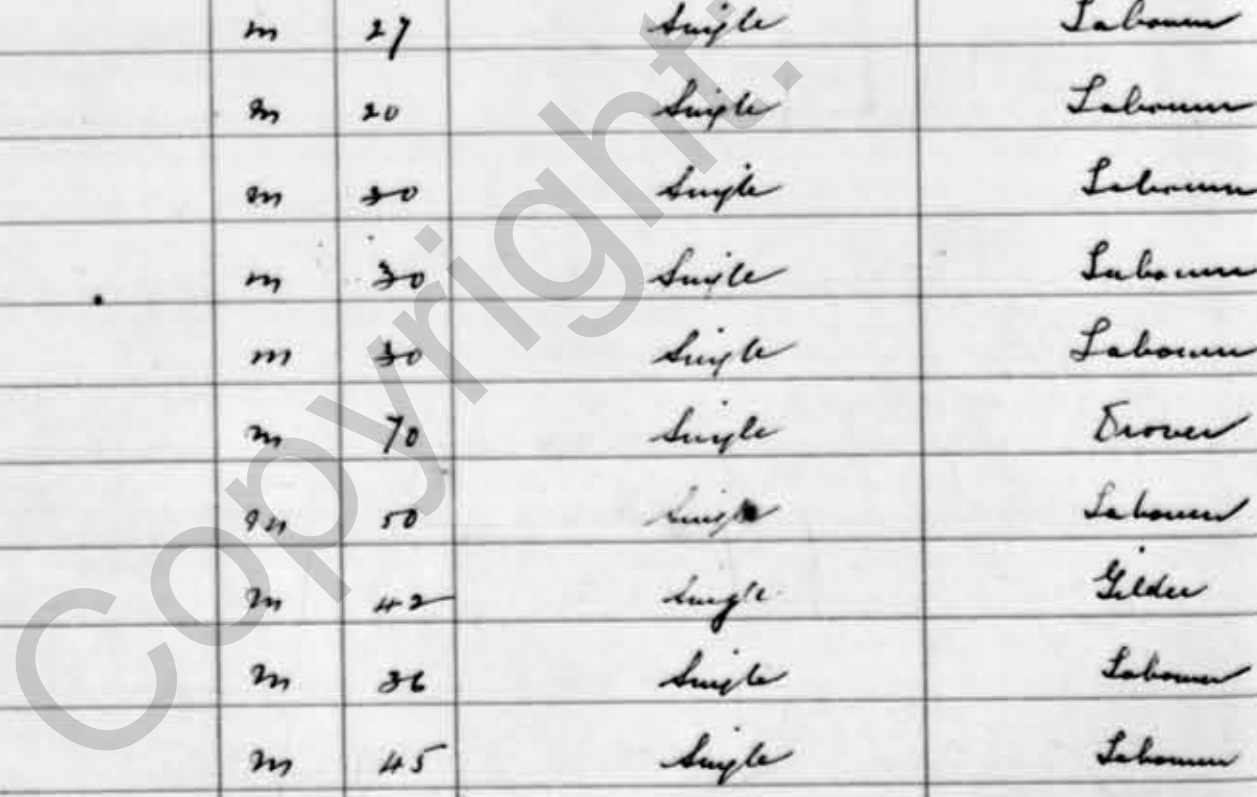 m 27 Single Labourer
m 20 Single Labourer
m 30 Single Labourer
m 30 Single Labourer
m 30 Single Labourer
m 70 Single Drover
m 50 Single Labourer
m 42 Single Gilder
m 36 Single Labourer
m 45 Single Labourer
Copyright.